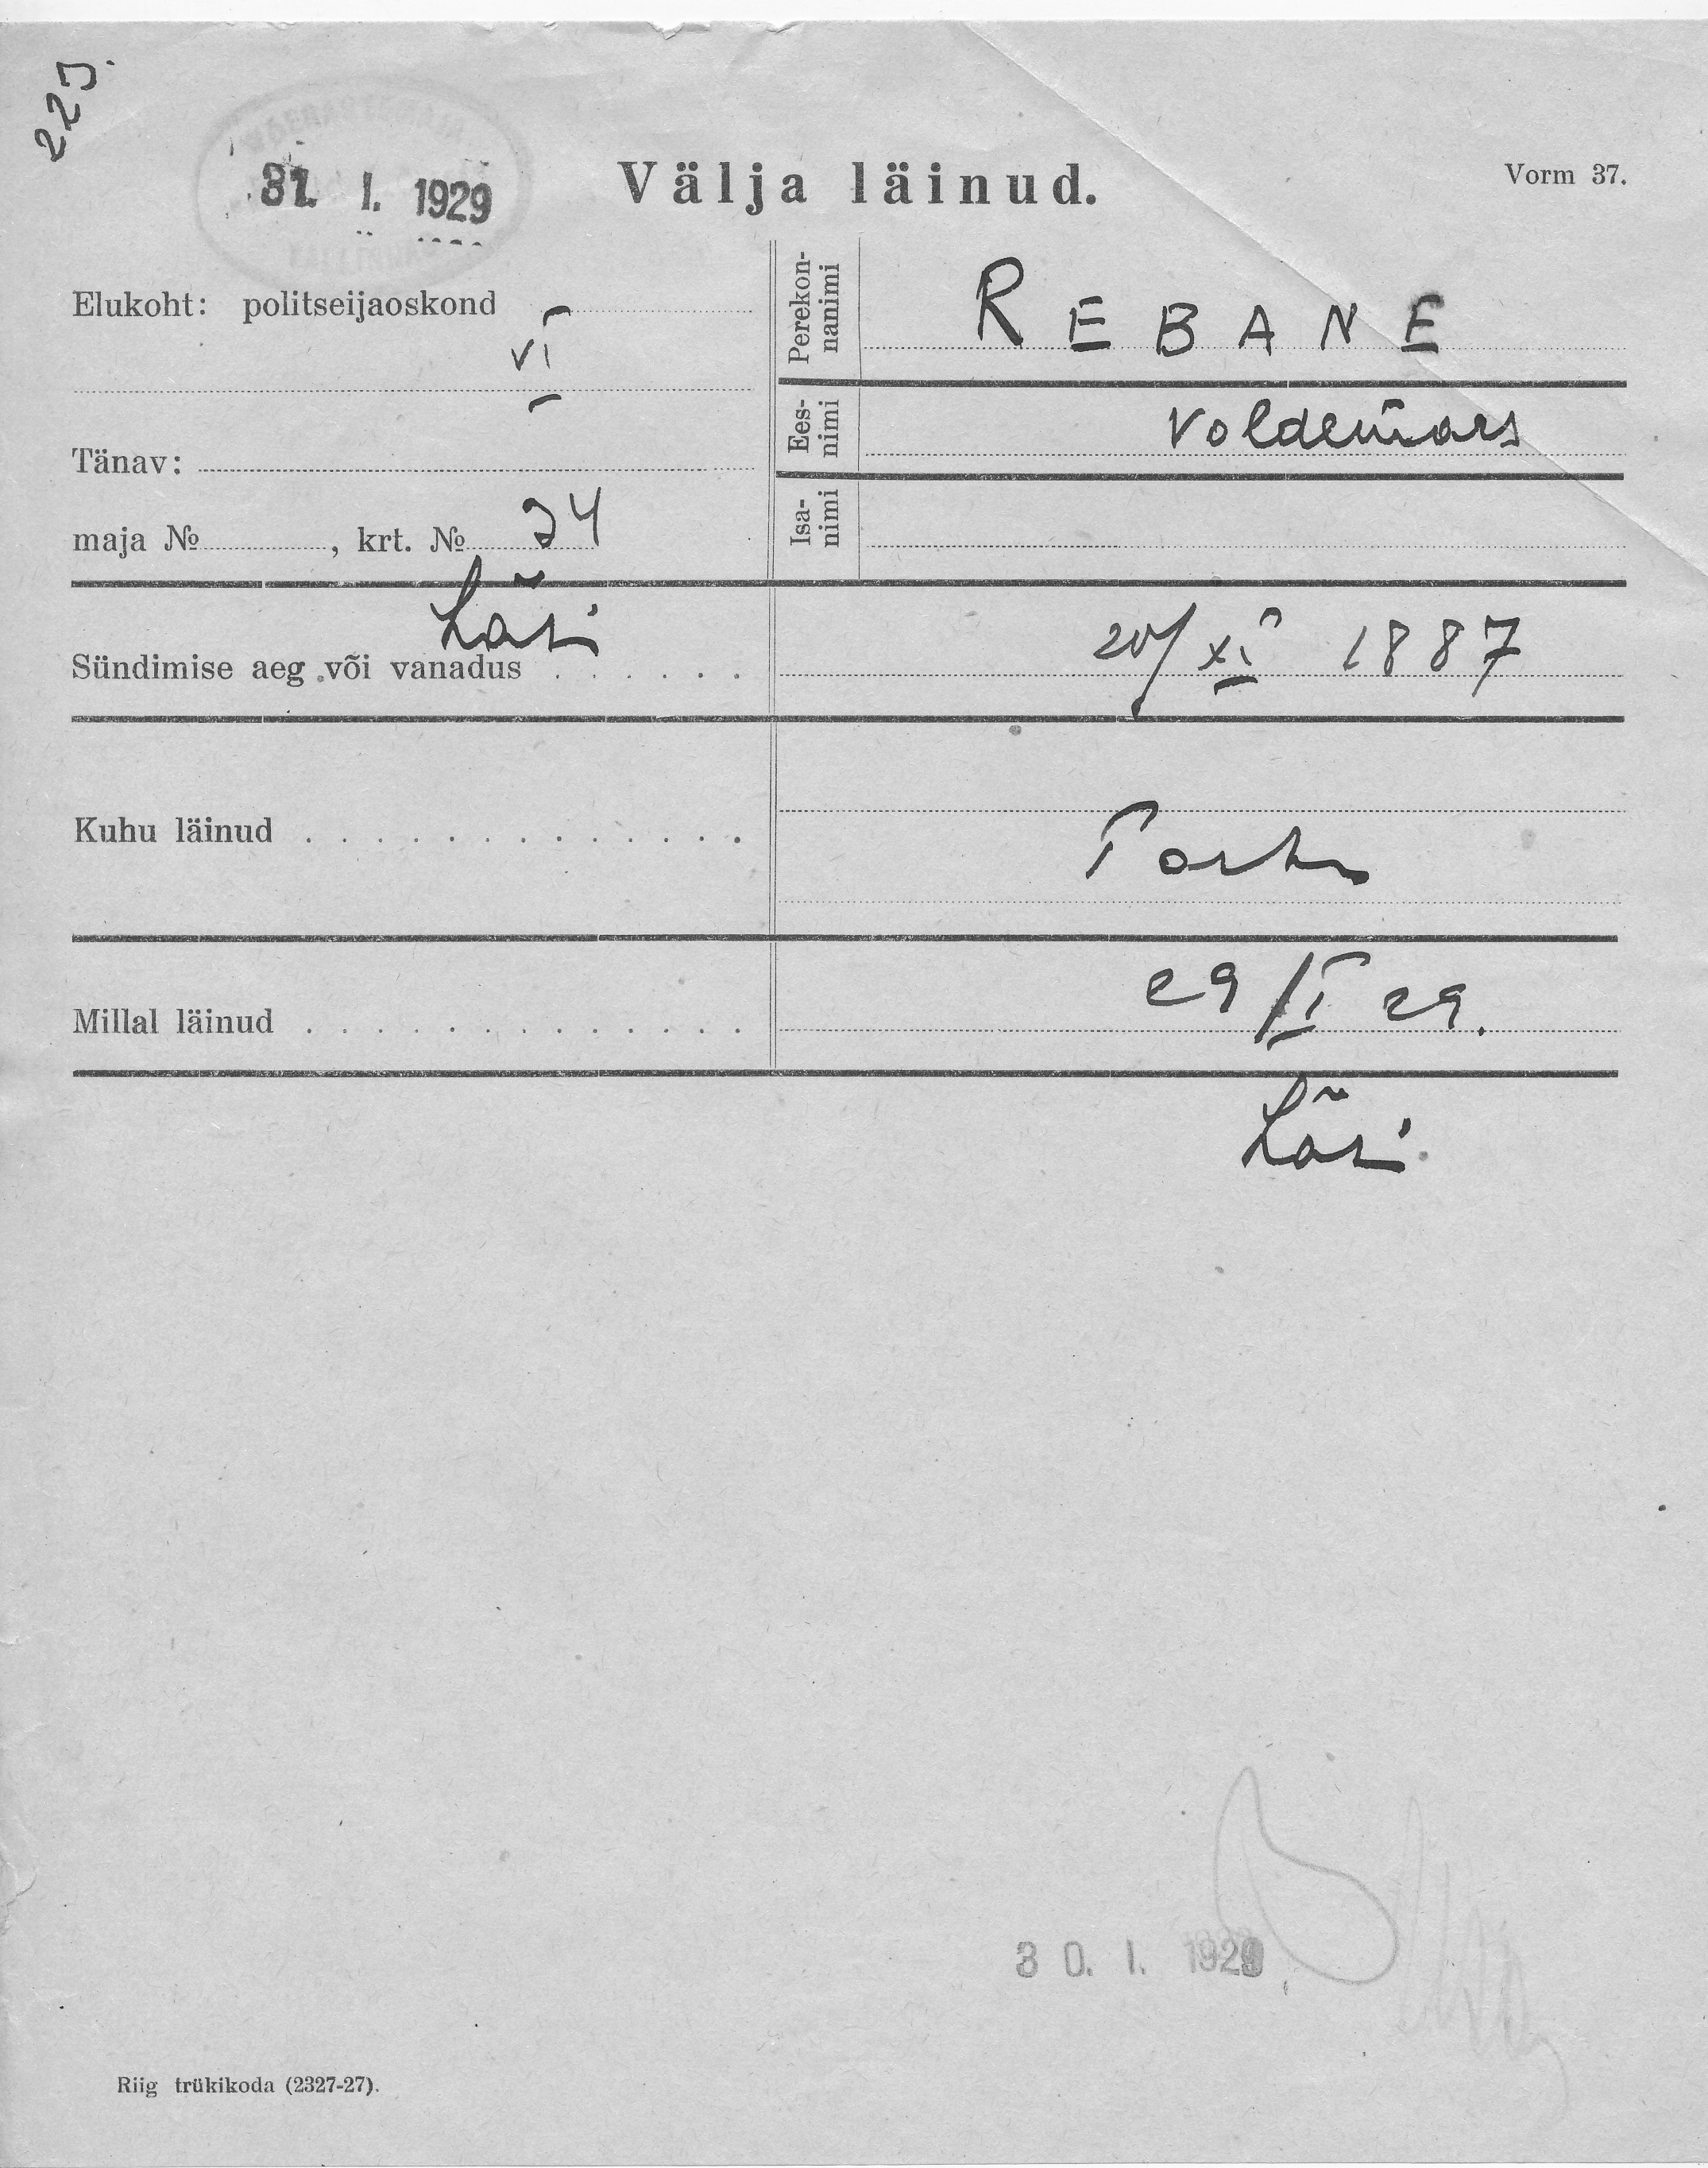 225.
31. I. 1929
Välja läinud.
Vorm 37.
Elukoht: politseijaoskond
VI
Tänav:
maja № , krt. № 24
Perekon-
nanimi
REBANE
Ees-
nimi
Voldemars
Isa-
nimi
Sündimise aeg või vanadus 20/XI 1887
Kuhu läinud
Millal läinud 29/I 29.
30. I. 1929
Riig trükikoda (2327-27).